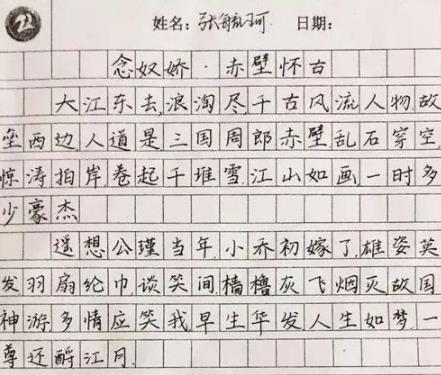 22
姓名：张毓珂 日期：
念奴娇·赤壁怀古
大江东去，浪淘尽，千古风流人物，故
垒西边，人道是，三国周郎赤壁，乱石穿空，
惊涛拍岸，卷起千堆雪，江山如画，一时多
少豪杰
遥想公瑾当年，小乔初嫁了，雄姿英
发，羽扇纶巾，谈笑间，樯橹灰飞烟灭，故国
神游，多情应笑我，早生华发，人生如梦，一
尊还酹江月。